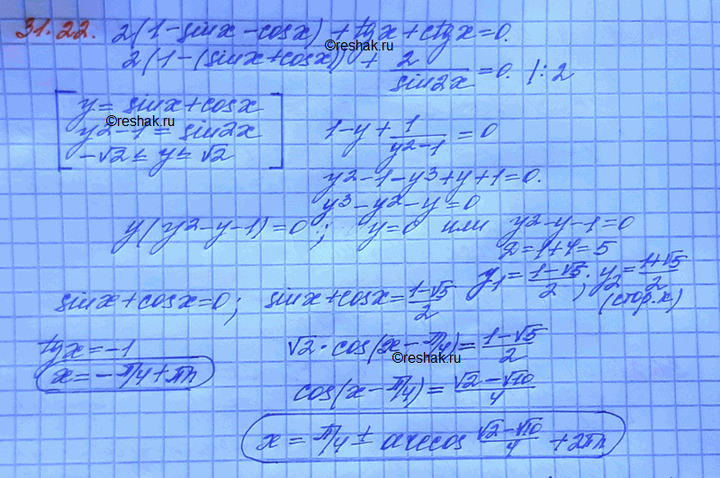 31.22. 2(1-sinx-cosx)+tgx+ctgx=0.
©reshak.ru
2(1-(sinx+cosx))+2/sin2x=0. /:2
y=sinx+cosx
y2-1=sin2x
-√2≤y≤√2
©reshak.ru
1-y+1/(y2-1)=0
y2-1-y3+y+1=0.
y3-y2-y=0
y(y2-y-1)=0; y=0 или y2-y-1=0
D=1+4=5
y1=(1-√5)/2; y2=(1+√5)/2
(стор.к)
sinx+cosx=0; sinx+cosx=(1-√5)/2
tgx=-1
x=-π/4+πn
√2·cos(x-π/4)=(1-√5)/2
©reshak.ru
cos(x-π/4)=(√2-√10)/4
x=π/4±arccos (√2-√10)/4+2πn